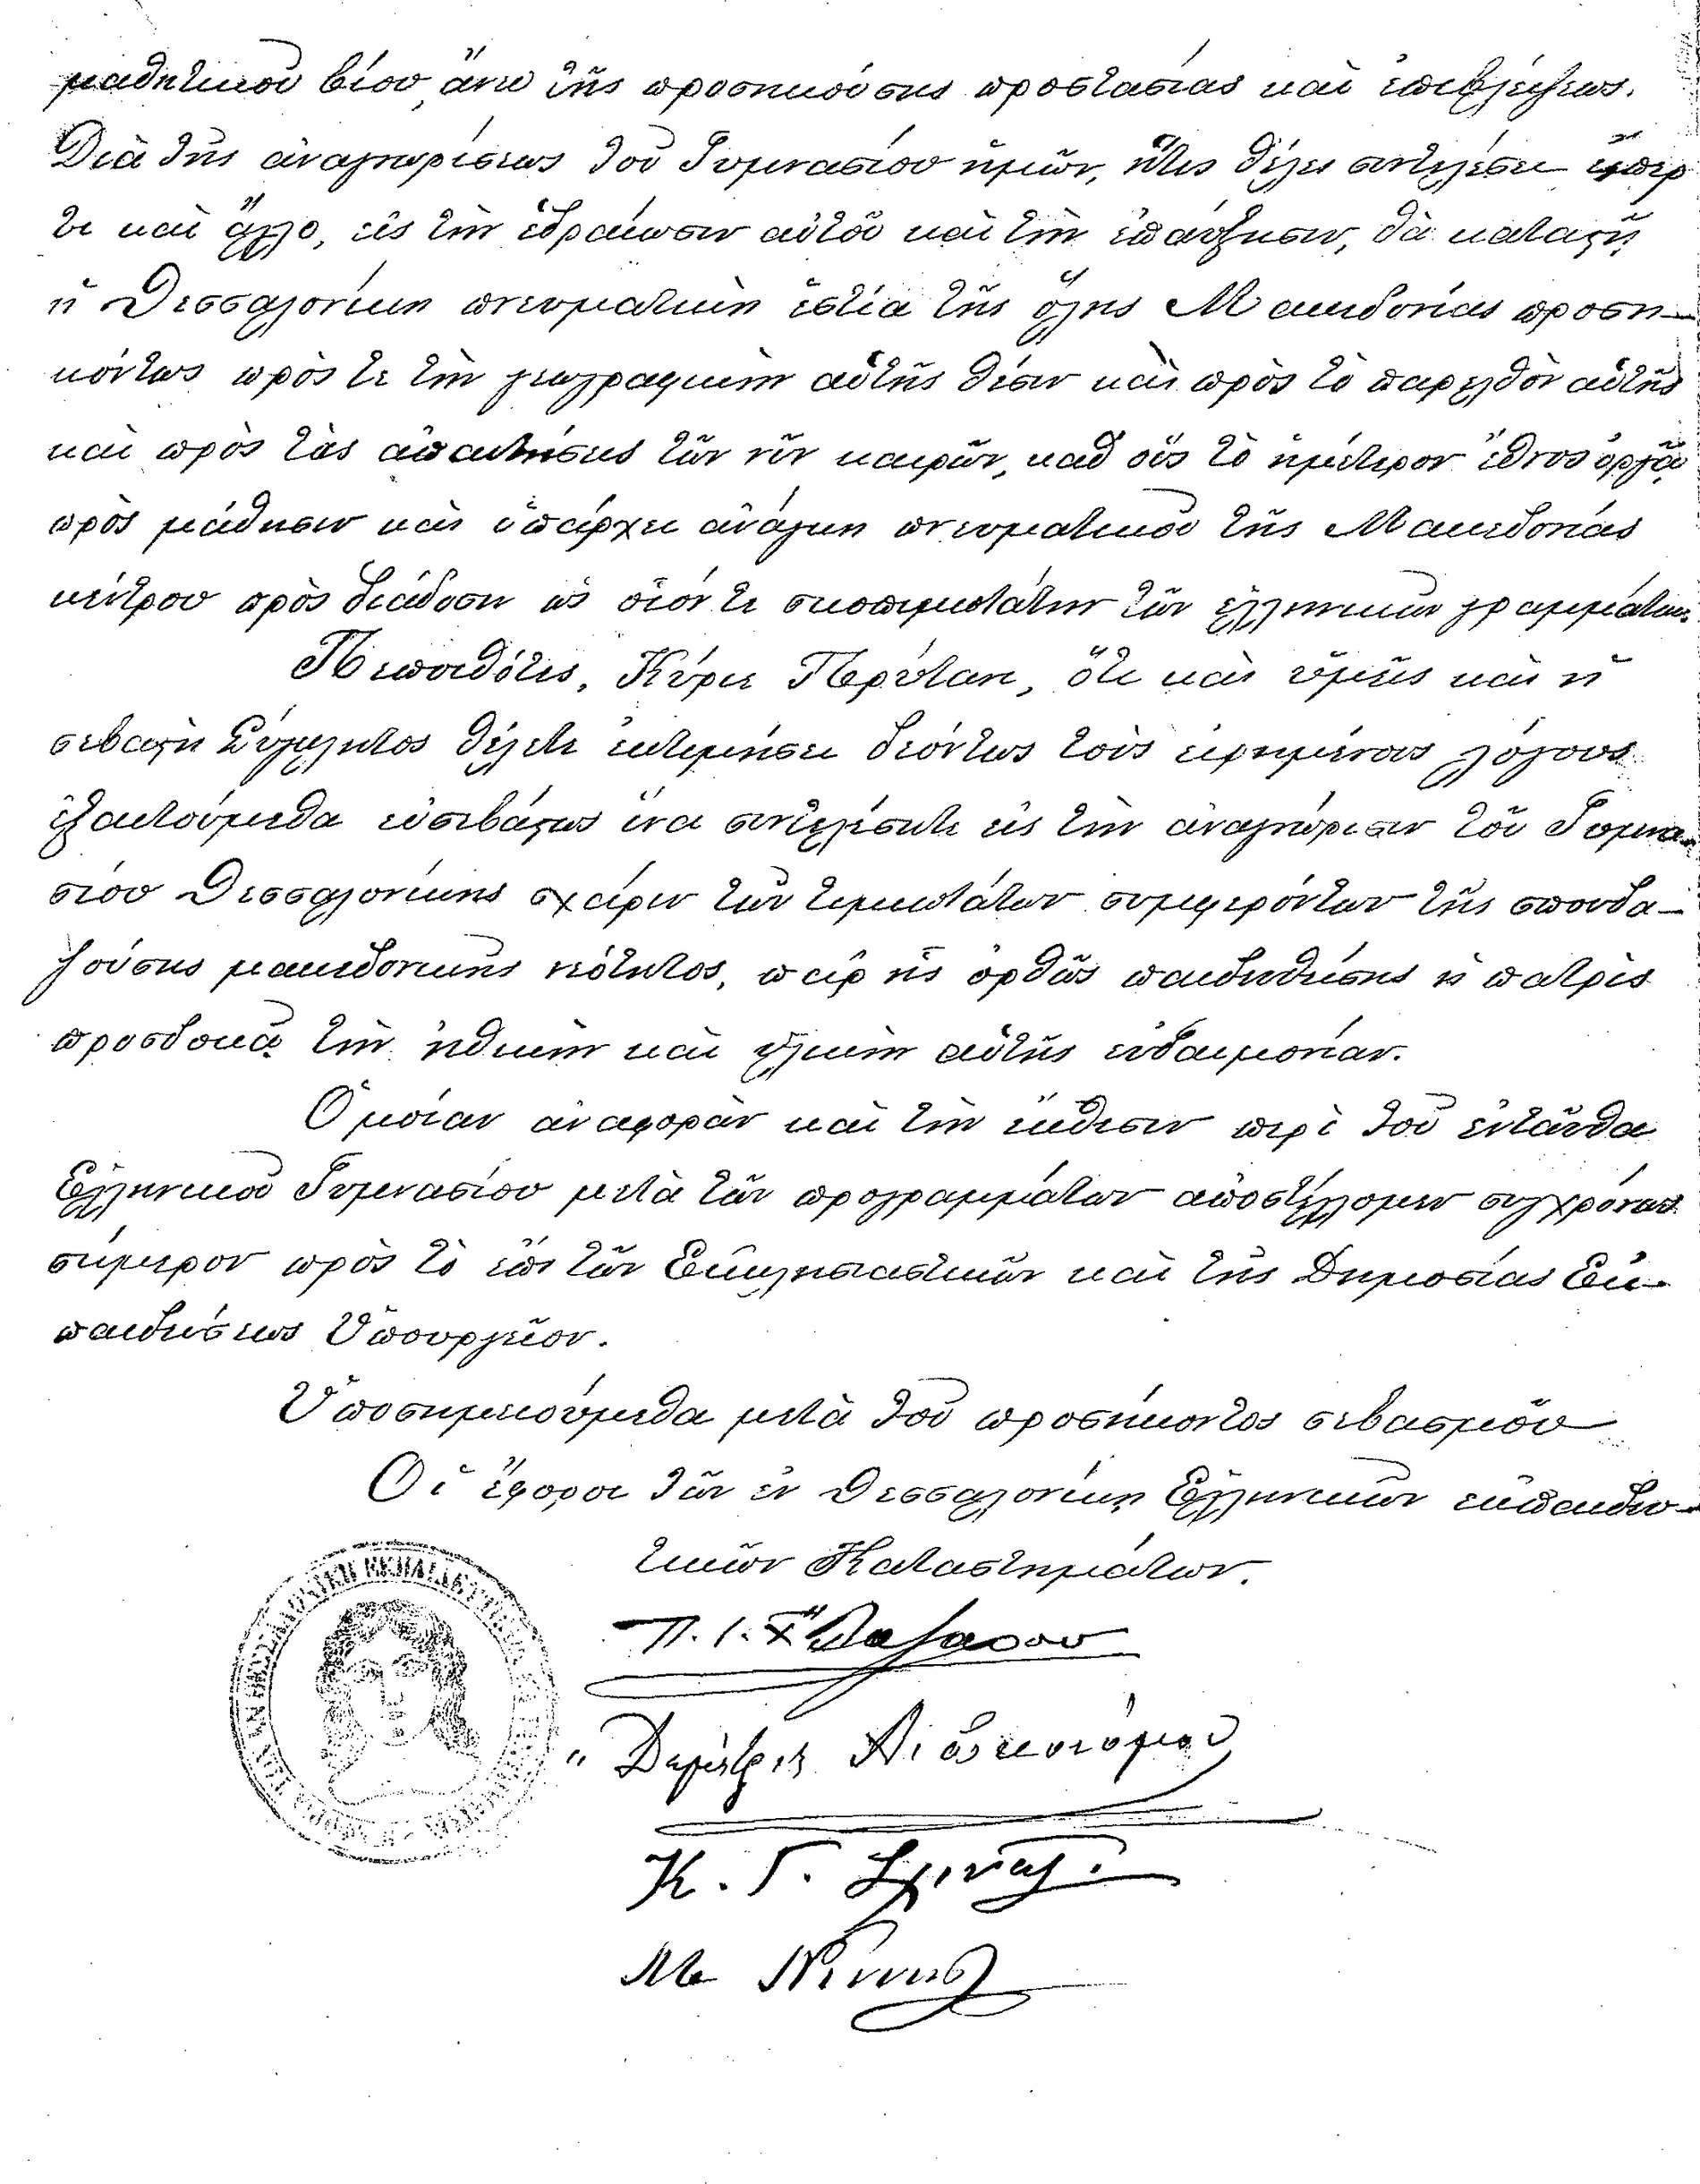 μαθητικοῦ βίου, ἄνευ τῆς προσηκούσης προστασίας καὶ ἐπιβλέψεως.
Διὰ τῆς ἀναγνωρίσεως τοῦ Γυμνασίου ἡμῶν, ἥτις θέλει συντελέσει εἴπερ
τι καὶ ἄλλο, εἰς τὴν ἑδραίωσιν αὐτοῦ καὶ τὴν ἐπαύξησιν, θὰ καταστῇ
ἡ Θεσσαλονίκη πνευματικὴ ἑστία τῆς ὅλης Μακεδονίας προση-
κόντως πρός τε τὴν γεωγραφικὴν αὑτῆς θέσιν καὶ πρὸς τὸ παρελθὸν αὑτῆς
καὶ πρὸς τὰς ἀπαιτήσεις τῶν νῦν καιρῶν, καθ' οὓς τὸ ἡμέτερον ἔθνος ὀργᾷ
πρὸς μάθησιν καὶ ὑπάρχει ἀνάγκη πνευματικοῦ τῆς Μακεδονίας
κέντρου πρὸς διάδοσιν ὡς οἷόν τε σκοπιμωτάτην τῶν ἑλληνικῶν γραμμάτων.
Πεποιθότες, Κύριε Πρύτανι, ὅτι καὶ ὑμεῖς καὶ ἡ
σεβαστὴ Σύγκλητος θέλετε ἐκτιμήσει δεόντως τοὺς εἰρημένους λόγους
ἐξαιτούμεθα εὐσεβάστως ἵνα συντελέσητε εἰς τὴν ἀναγνώρισιν τοῦ Γυμνα-
σίου Θεσσαλονίκης χάριν τῶν τιμιωτάτων συμφερόντων τῆς σπουδα-
ζούσης μακεδονικῆς νεότητος, παρ' ἧς ὀρθῶς παιδευθείσης ἡ πατρὶς
προσδοκᾷ τὴν ἠθικὴν καὶ ὑλικὴν αὑτῆς εὐδαιμονίαν.
Ὁμοίαν ἀναφορὰν καὶ τὴν ἔκθεσιν περὶ τοῦ ἐνταῦθα
Ἑλληνικοῦ Γυμνασίου μετὰ τῶν προγραμμάτων ἀποστέλλομεν συγχρόνως
σήμερον πρὸς τὸ ἐπὶ τῶν Ἐκκλησιαστικῶν καὶ τῆς Δημοσίας Ἐκ-
παιδεύσεως Ὑπουργεῖον.
Ὑποσημειούμεθα μετὰ τοῦ προσήκοντος σεβασμοῦ
Οἱ ἔφοροι τῶν ἐν Θεσσαλονίκῃ Ἑλληνικῶν ἐκπαιδευ-
τικῶν Καταστημάτων.
Π. Ι. Χ"Λαζάρου
Δημήτριος
Κ. Γ.